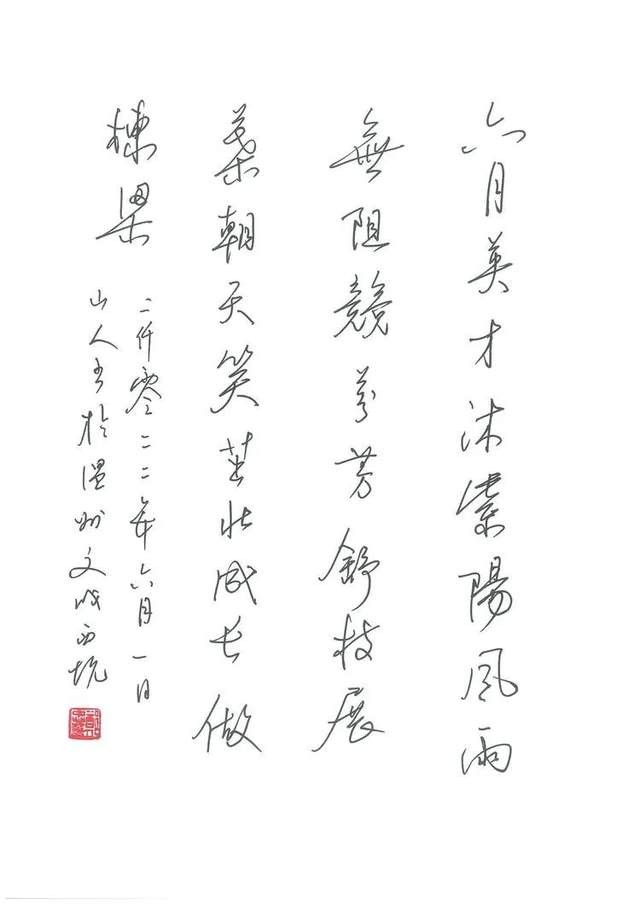 六月英才沐紫陽風雨
無阻競芬芳舒枝展
葉朝天笑茁壯成长做
棟梁
二仟零二二年六月一日
山人书於温州文成西坑